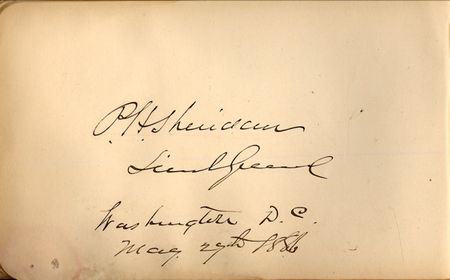 P. H. Sheridan
Lieut General
Washington D.C.
May 29th 1886